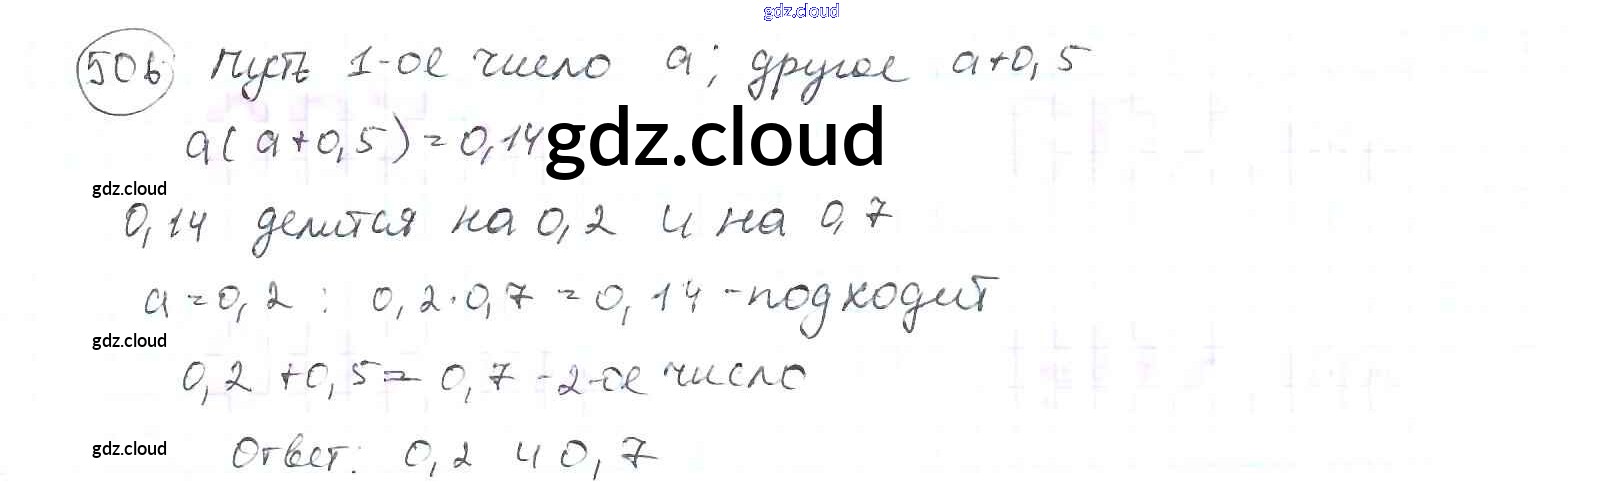 gdz.cloud
506 Пусть 1-ое число a; другое a+0,5
a(a+0,5)=0,14
gdz.cloud
gdz.cloud
0,14 делится на 0,2 и на 0,7
a=0,2: 0,2·0,7=0,14-подходит
gdz.cloud
0,2+0,5=0,7-2-ое число
gdz.cloud
Ответ: 0,2 и 0,7